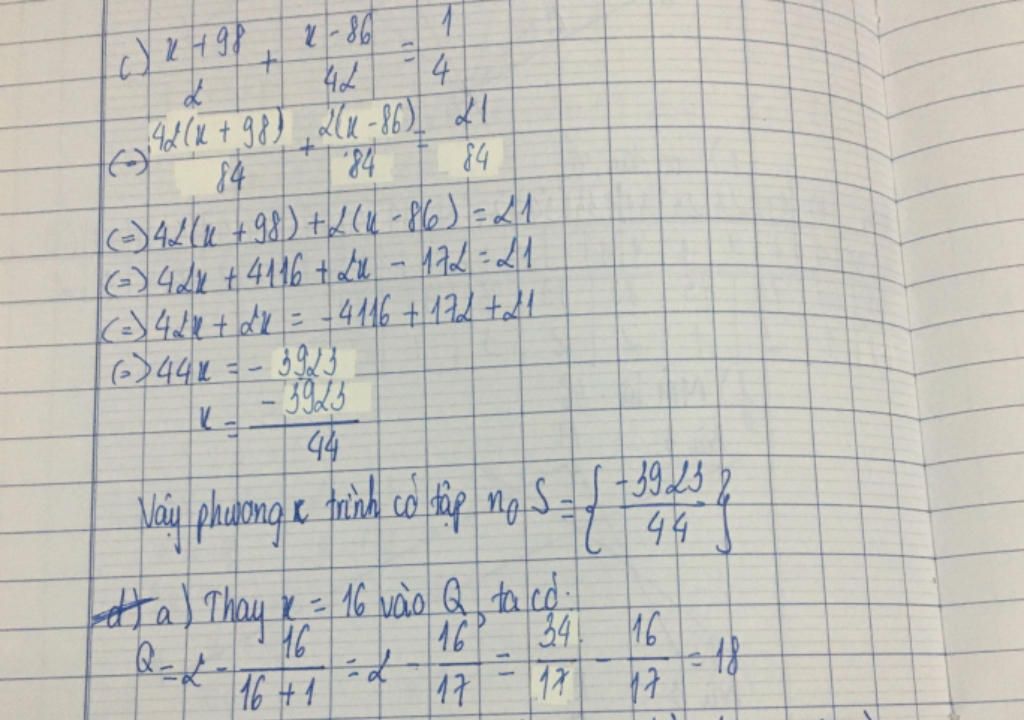 c) (x + 98)/2 + (x - 86)/42 = 1/4
(=) 42(x + 98)/84 + 2(x - 86)/84 = 21/84
(=) 42(x + 98) + 2(x - 86) = 21
(=) 42x + 4116 + 2x - 172 = 21
(=) 42x + 2x = -4116 + 172 + 21
(=) 44x = - 3923
x = - 3923/44
Vậy phương trình có tập n₀ S = {-3923/44}
a) Thay x = 16 vào Q, ta có:
Q = 2 - 16/(16 + 1) = 2 - 16/17 = 34/17 - 16/17 = 18